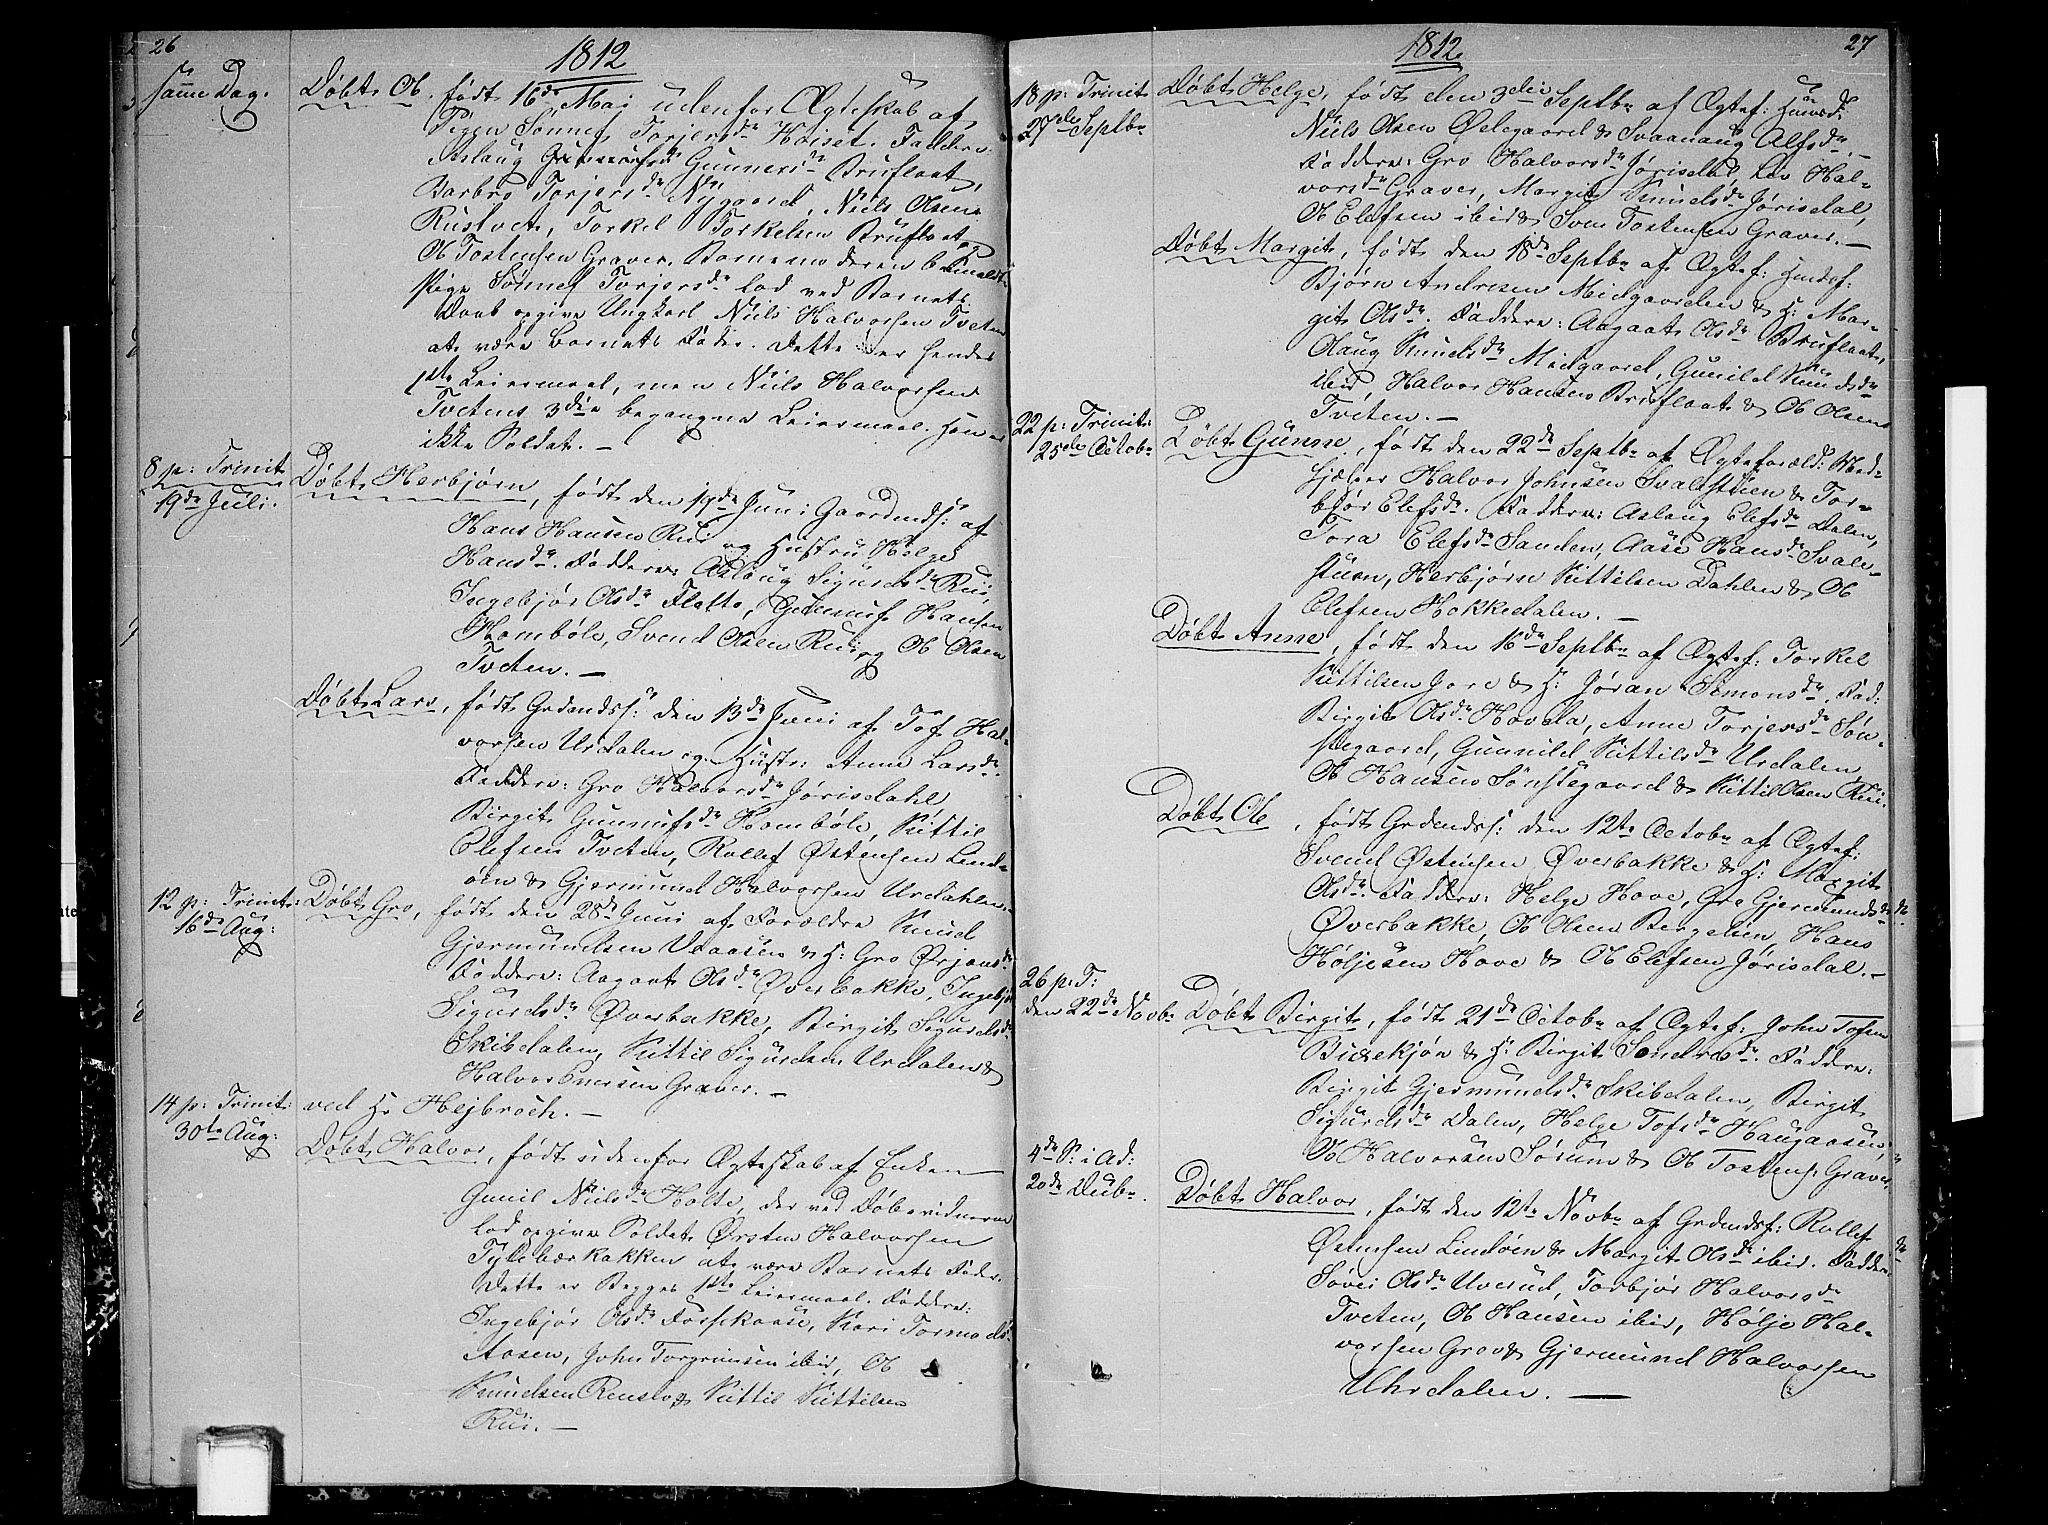 26
1812
Samme Dag.
Døbt Ol. født 16de Maj udenfor Ægteskab af
Pigen Sønnef Torjersdr Høiset. Faddere
Aslaug Gunnersdr Bruflaat,
Barbro Torjersdr Nÿgaard, Niels Olsen
Rustvet, Torkel Torkelsen Bruflaat og
Ol Tostensen Graver. Barnemoderen bemeldte
Pige Sønnef Torjersdr lod ved Barnets
Daab opgive Ungkarl Niels Halvorsen Tveten
at være Barnets Fader. Dette er hendes
1ste Leiermaal, men Niels Halvorsen
Tvetens 3die begangne Leiermaal. Han er
ikke Soldat. —
8 p: Trinit
19de Juli.
Døbt Herbjørn, født den 19de Juni Gaardmds: af
Hans Hansen Rui og Hustru Helge
Hansdr. Faddere: Aslaug Sigurdsdr Rui,
Ingebjør Olsdr Flatte, Gunnuf Hansen
Hombøle, Svend Olsen Rui og Ol Olsen
Tveten. —
Døbt Lars, født Grdmds: den 13de Juni af Tof Hal-
vorsen Urdalen og Hustr: Anne Larsdr.
Faddere: Gro Halvorsdr Jørisdahl,
Birgit Gunnufsdr Hombøle, Kittil
Olefsen Tveten, Rollef Østensen Lind-
øen & Gjermund Halvorsen Urdahlen. —
12 p: Trinit:
16de Aug:
Døbt Gro, født den 28de Juni af Forældre Knud
Gjermundsen Vaaasen & H: Gro Ørjansdr.
Faddere: Aagaat Olsdr Øverbakke, Ingebjør
Sigurdsdr Øverbakke, Birgit Sigurdsdr
Skibdalen, Kittil Sigurdsen Urdalen &
Halvor Eversen Graver. —
14 p: Trinit:
30te Aug:
ved Hr Hejbroch. —
Døbt Halvor, født udenfor Ægteskab af Enken
Gunil Nielsdr Holte, der ved Døbevidnerne
lod opgive Soldat Ørsten Halvorsen
Tytebærbakken at være Barnets Fader.
Dette er Begges 1ste Leiermaal. Faddere:
Ingebjør Olsdr Forsekaase, Kari Tormods
Aasen, John Torgrimsen ibid, Ol
Knudsen Renslo & Kittil Kittilsen
Rui. —
27
1812
18 p: Trinit
27de Septbr
Døbt Helge, født den 3die Septbr af Ægtef: Huusd:
Niels Olsen Ødegaard & Svaanaug Alfsdr. —
Faddere: Gro Halvorsdr Jørisdal, Liv Hal-
vorsdr Graver, Margit Knudsdr Jørisdal,
Ol Elefsen ibid & Sven Tostensen Graver. —
Døbt Margit, født den 18de Septbr af Ægtef: Hmdsf:
Bjørn Andresen Midgaarden & H: Mar-
git Olsdr. Faddere: Aagaat Olsdr Bruflaat,
Olaug Knudsdr Midgaard, Gunild Knudsdr
ibid Halvor Hansen Bruflaat & Ol Olsen
Tveten. —
22 p: Trinit:
25de Octobr
Døbt Gunne, født den 22de Septbr af Ægteforæld: Med-
hjælper Halvor Johnsen Svalestuen & Tor-
bjør Elefsdr. Faddere: Aslaug Elefsdr Dalen,
Tora Elefsdr Sanden, Aase Hansdr Svale-
stuen, Herbjørn Kittilsen Dahlen & Ol
Elefsen Hokkedalen. —
Døbt Anne, født den 16de Septbr af Ægtef: Torkel
Kittilsen Jore & H: Jøran Simonsdr. Fad:
Birgit Olsdr Hovda, Anne Torjersdr Søn-
stegaard, Gunnild Kittilsdr Urdalen,
Ol Hansen Sønstegaard & Kittil Olsen Rui.
Døbt Ol, født Grdmds: den 12te Octobr af Ægtef:
Svend Østensen Øverbakke & H: Margit
Olsdr Faddere: Helge Hove, Gro Gjermundsdr
Øverbakke, Ol Olsen Bergelien, Hans
Høljesen Hove & Ol Elefsen Jørisdal. —
26 p: T:
den 22de Novbr
Døbt Birgit, født 21de Octobr af Ægtef: John Tofsen
Buxekjøn & H: Birgit Sondresdr. Faddere:
Birgit Gjermundsdr Skibdalen, Birgit
Sigurdsdr Dalen, Helge Tofsdr Haugaasen,
Ol Halvorsen Sørum & Ol Tostens: Graver.
4de S: i Ad:
20de Decbr.
Døbt Halvor, født den 12te Novbr af Grdmdsf: Rollef
Østensen Lindøen & Margit Olsdr ibid. Faddere
Søvei Olsdr Uverud, Torbjør Halvorsdr
Tveten, Ol Hansen ibid, Hølje Hal-
vorsen Grov & Gjermund Halvorsen
Uhrdalen. —